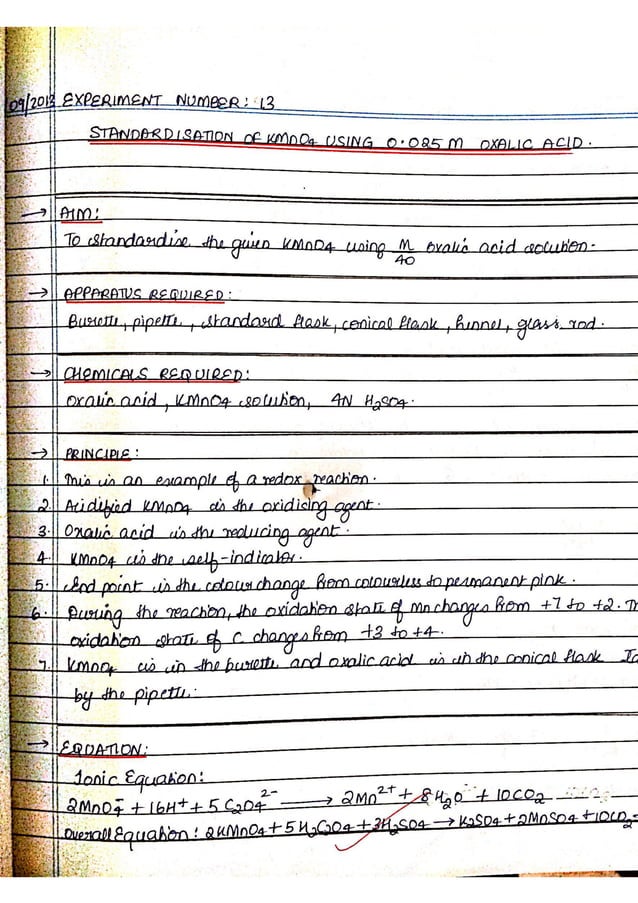 09/2013 EXPERIMENT NUMBER: 13
STANDARDISATION OF KMnO4 USING 0.025 M OXALIC ACID.
→ AIM:
To standardise the given KMnO4 using M/40 oxalic acid solution.
→ APPARATUS REQUIRED:
Burette, pipette, standard flask, conical flask, funnel, glass rod.
→ CHEMICALS REQUIRED:
oxalic acid, KMnO4 solution, 4N H2SO4.
→ PRINCIPLE:
1. This is an example of a redox reaction.
2. Acidified KMnO4 is the oxidising agent.
3. Oxalic acid is the reducing agent.
4. KMnO4 is the self-indicator.
5. End point is the colour change from colourless to permanent pink.
6. During the reaction, the oxidation state of Mn changes from +7 to +2. Th
oxidation state of C changes from +3 to +4.
7. KMnO4 is in the burette and oxalic acid is in the conical flask
by the pipette.
→ EQUATION:
Ionic Equation:
2MnO4⁻ + 16H⁺ + 5C2O4²⁻ → 2Mn²⁺ + 8H2O + 10CO2
Overall Equation: 2KMnO4 + 5H2C2O4 + 3H2SO4 → K2SO4 + 2MnSO4 + 10CO2